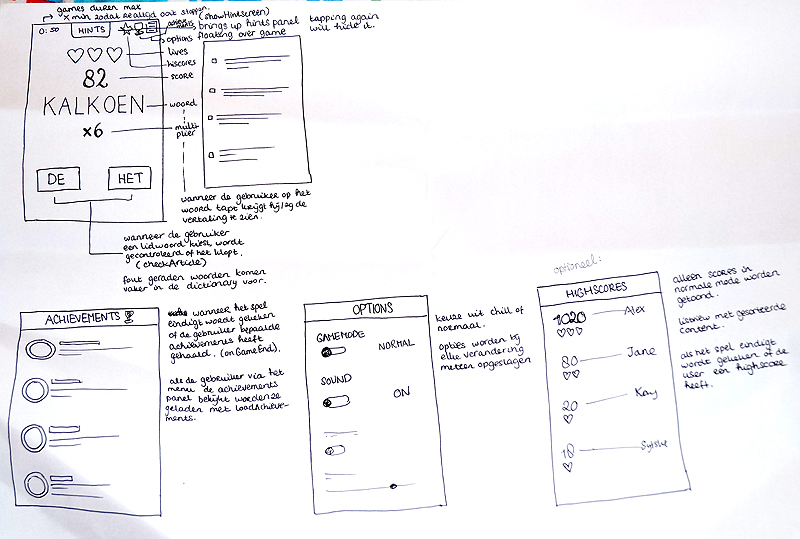 games duren max
x min zodat realtijd ooit stoppen.
0:50
HINTS
(showHintscreen)
brings up hints panel
floating over game
tapping again
will hide it.
options
lives
hiscores
82
score
KALKOEN
woord
x6
multi
plier
DE
HET
wanneer de gebruiker op het
woord tapt krijgt hij/zij de
vertaling te zien.
wanneer de gebruiker
een lidwoord kiest, wordt
gecontroleerd of het klopt.
(checkArticle)
fout geraden woorden komen
vaker in de dictionary voor.
ACHIEVEMENTS
wanneer het spel
eindigt wordt gekeken
of de gebruiker bepaalde
achievements heeft
gehaald. (onGameEnd).
als de gebruiker via het
menu de achievements
panel bekijkt worden ze
geladen met loadAchieve-
ments.
OPTIONS
GAMEMODE
NORMAL
SOUND
ON
keuze uit chill of
normaal.
opties worden bij
elke verandering
meteen opgeslagen
optioneel:
HIGHSCORES
1020
Alex
80
Jane
20
Kay
10
alleen scores in
normale mode worden
getoond.
listview met gesorteerde
content.
als het spel eindigt
wordt gekeken of de
user een highscore
heeft.